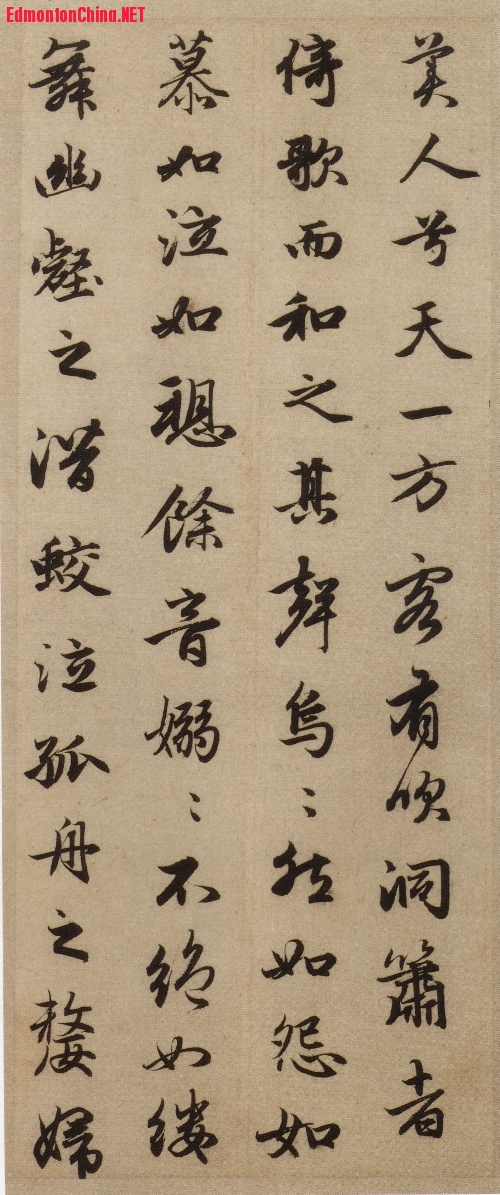 EdmontonChina.NET
美人兮天一方客有吹洞簫者
倚歌而和之其聲烏〻然如怨如
慕如泣如愬餘音嫋〻不絕如縷
舞幽壑之潛蛟泣孤舟之嫠婦